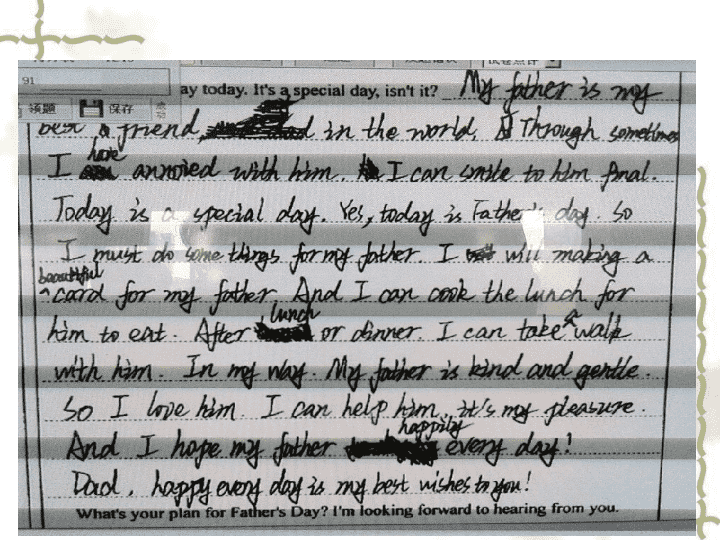 91
ay today. It's a special day, isn't it? My father is my
保存
best a friend, in the world. Through sometimes
I have annoied with him. I can smile to him final.
Today is a special day. Yes, today is Father's day. So
I must do some things for my father. I will making a
beautiful
card for my father. And I can cook the lunch for
him to eat. After lunch or dinner I can take a walk
with him. In my way. My father is kind and gentle.
So I love him. I can help him, it's my pleasure.
And I hope my father happily every day!
Dad, happy every day is my best wishes to you!
What's your plan for Father's Day? I'm looking forward to hearing from you.